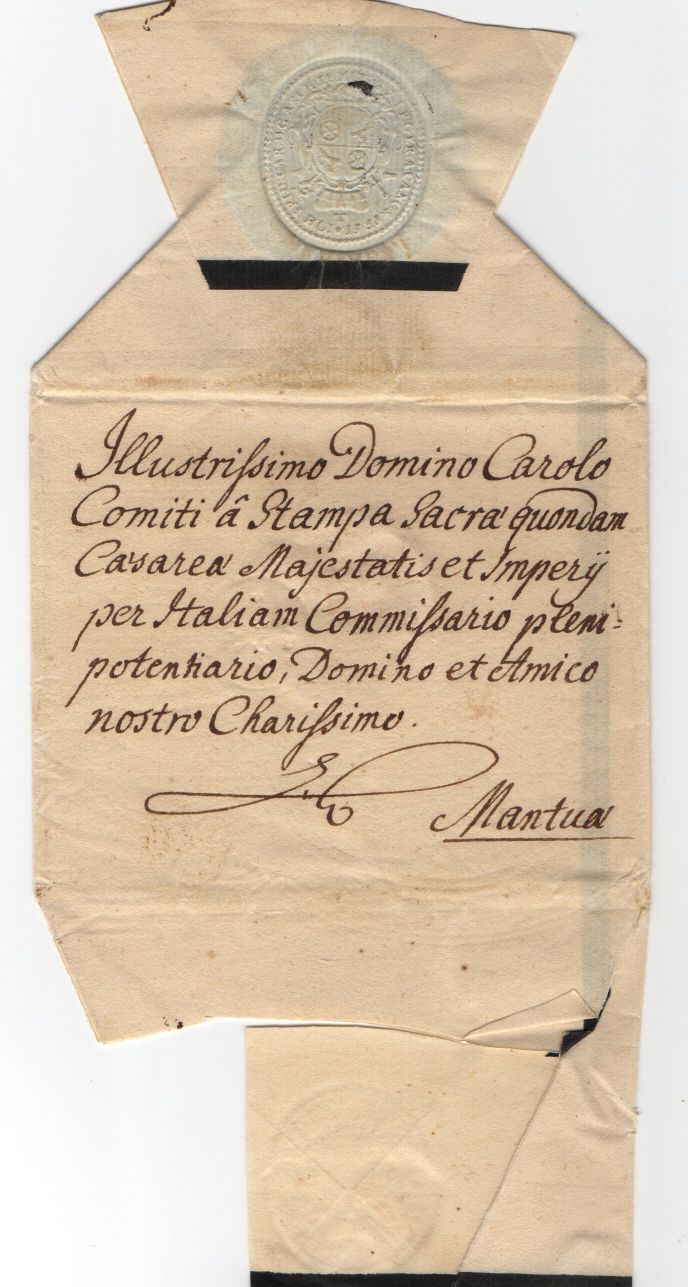 Illustrissimo Domino Carolo
Comiti â Stampa Sacræ quondam
Cæsareæ Majestatis et Imperÿ
per Italiam Commissario pleni=
potentiario, Domino et Amico
nostro Charissimo.
Mantuæ